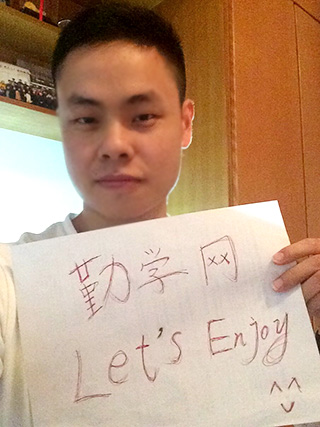 勤学网
Let's Enjoy
^^